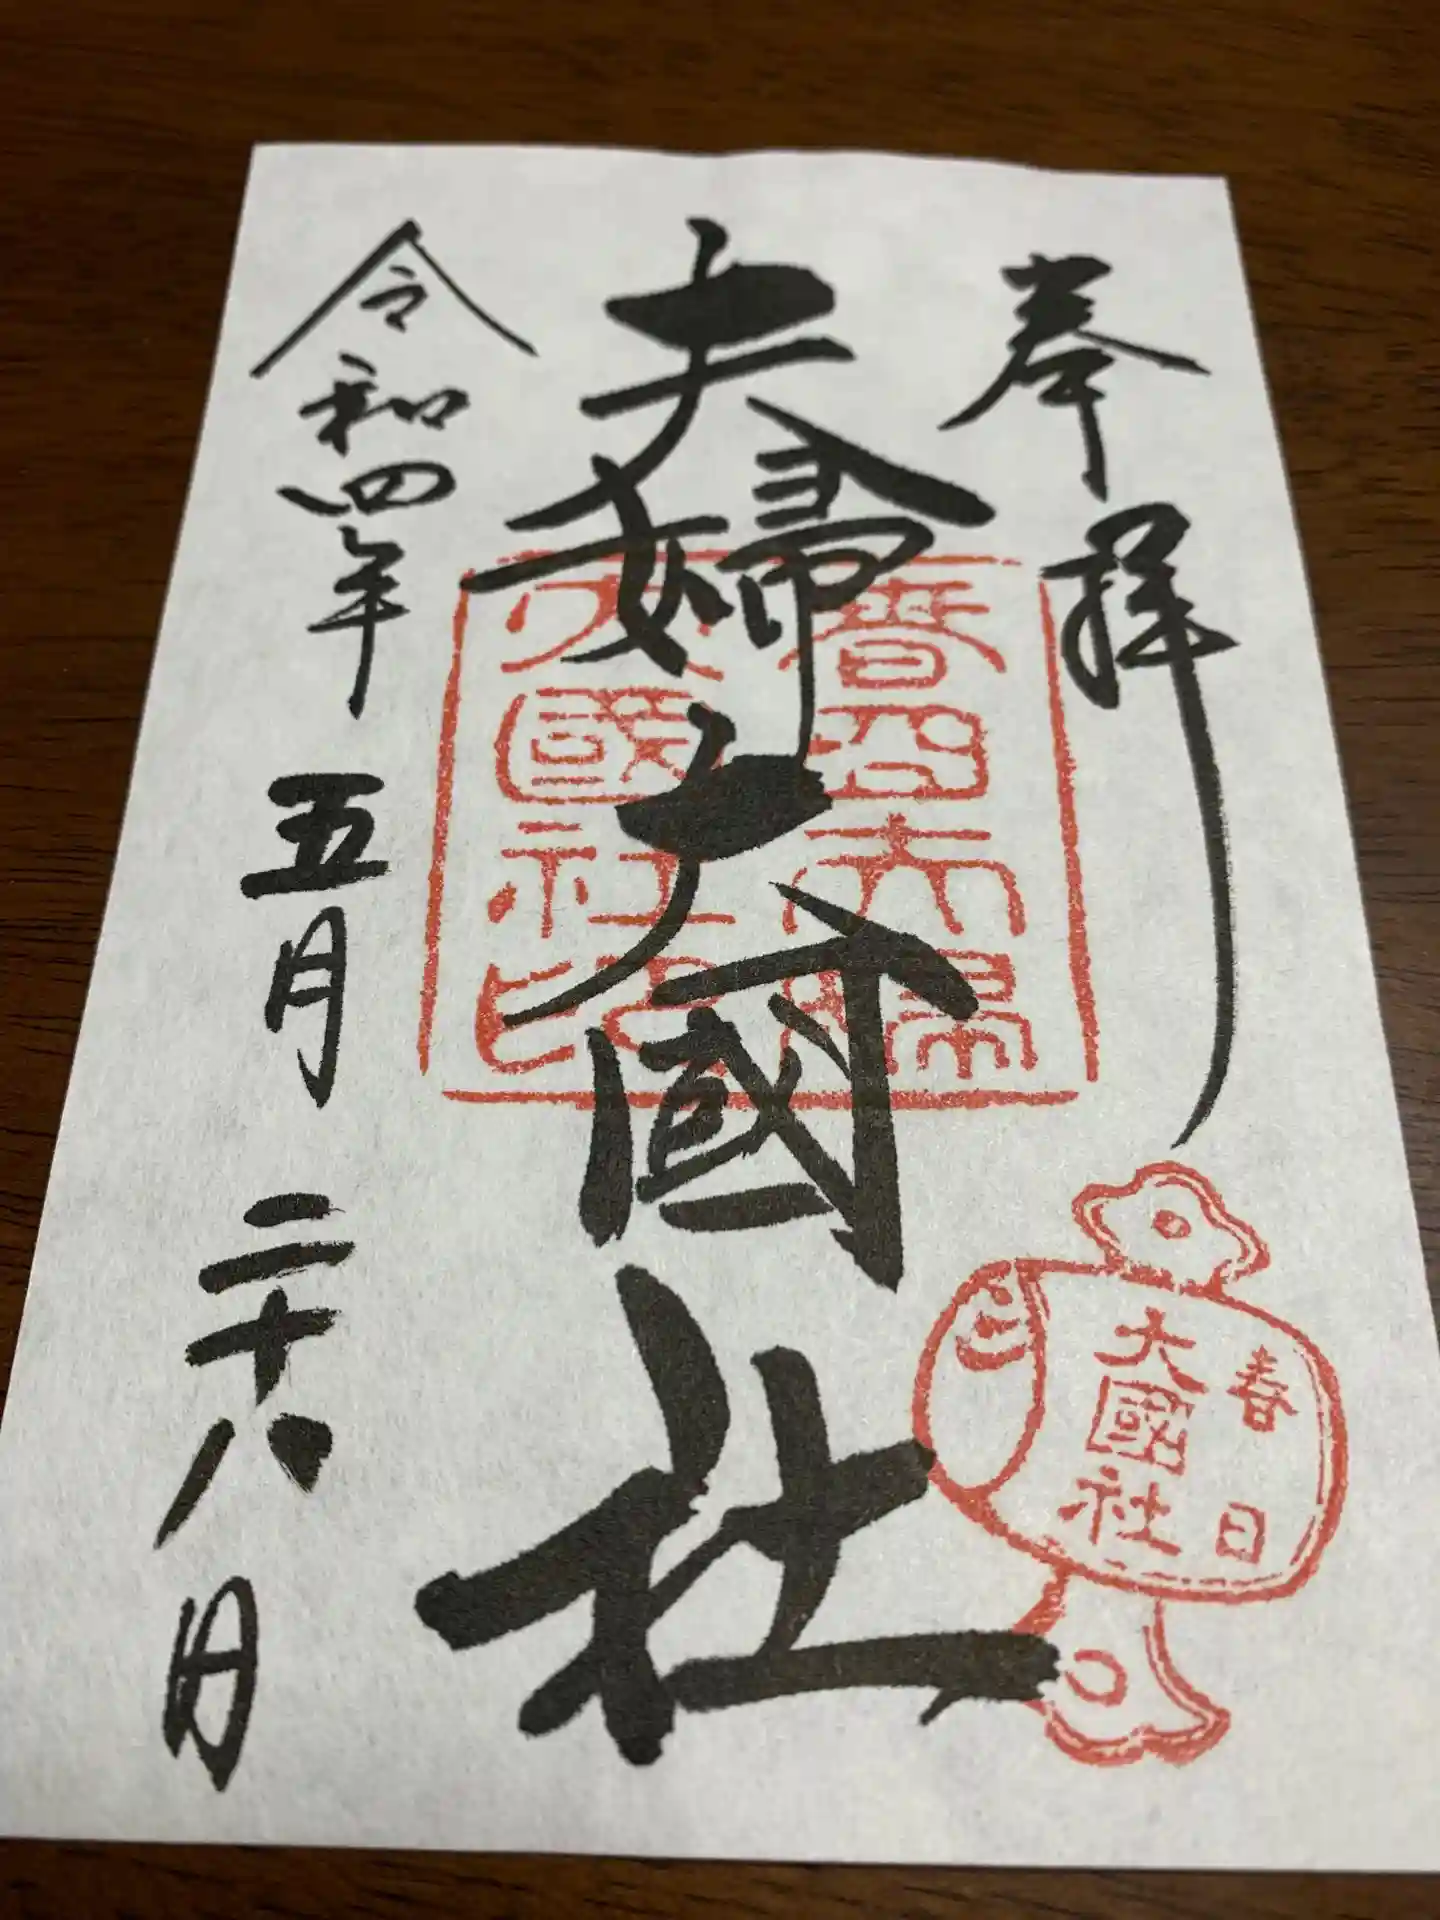 奉拝
春日
大國社
春日夫婦
大國社印
夫婦大國社
令和四年五月二十八日